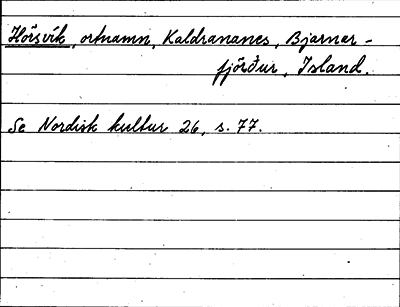 Hörsvík, ortnamn, Kaldrananes, Bjarnar-
fjörður, Island.
Se Nordisk kultur 26, s. 77.